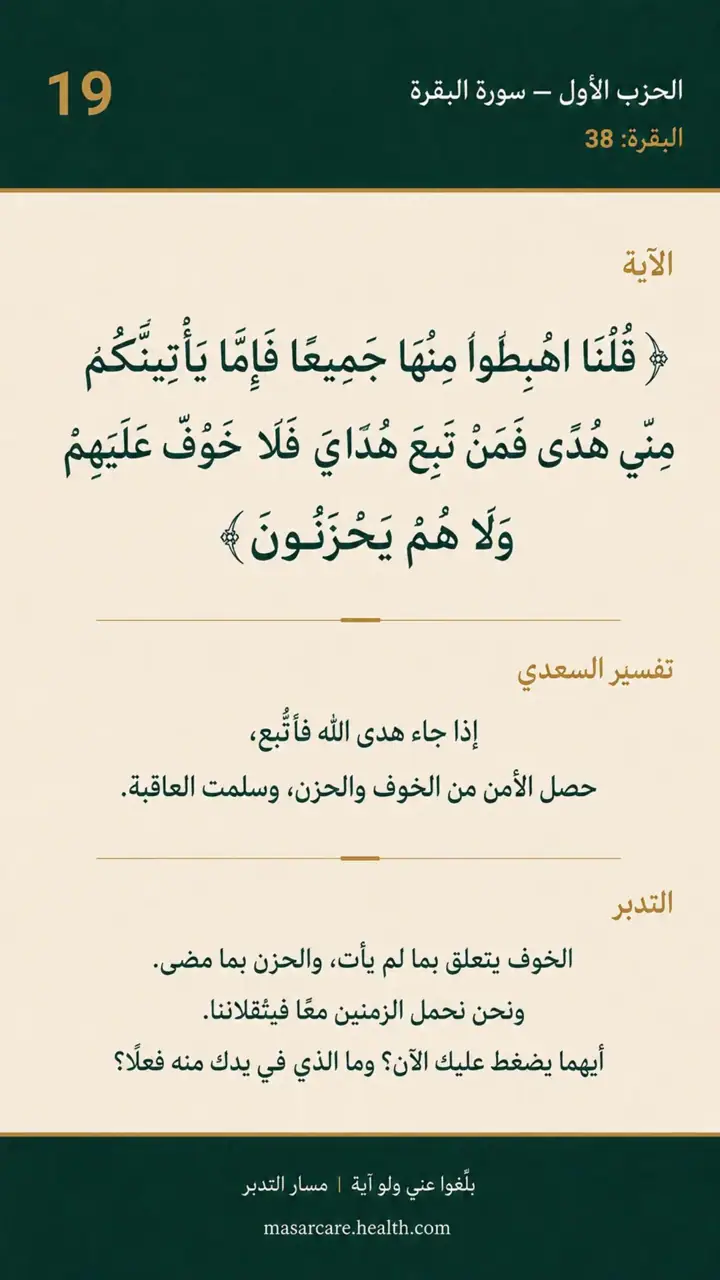 الحزب الأول – سورة البقرة
19
البقرة: 38
الآية
﴿ قُلْنَا اهْبِطُوا مِنْهَا جَمِيعًا فَإِمَّا يَأْتِيَنَّكُمْ
مِنِّي هُدًى فَمَنْ تَبِعَ هُدَايَ فَلَا خَوْفٌ عَلَيْهِمْ
وَلَا هُمْ يَحْزَنُونَ ﴾
تفسير السعدي
إذا جاء هدى الله فأتُّبع،
حصل الأمن من الخوف والحزن، وسلمت العاقبة.
التدبر
الخوف يتعلق بما لم يأت، والحزن بما مضى.
ونحن نحمل الزمنين معًا فيثقلاننا.
أيهما يضغط عليك الآن؟ وما الذي في يدك منه فعلًا؟
بلِّغوا عني ولو آية | مسار التدبر
masarcare.health.com